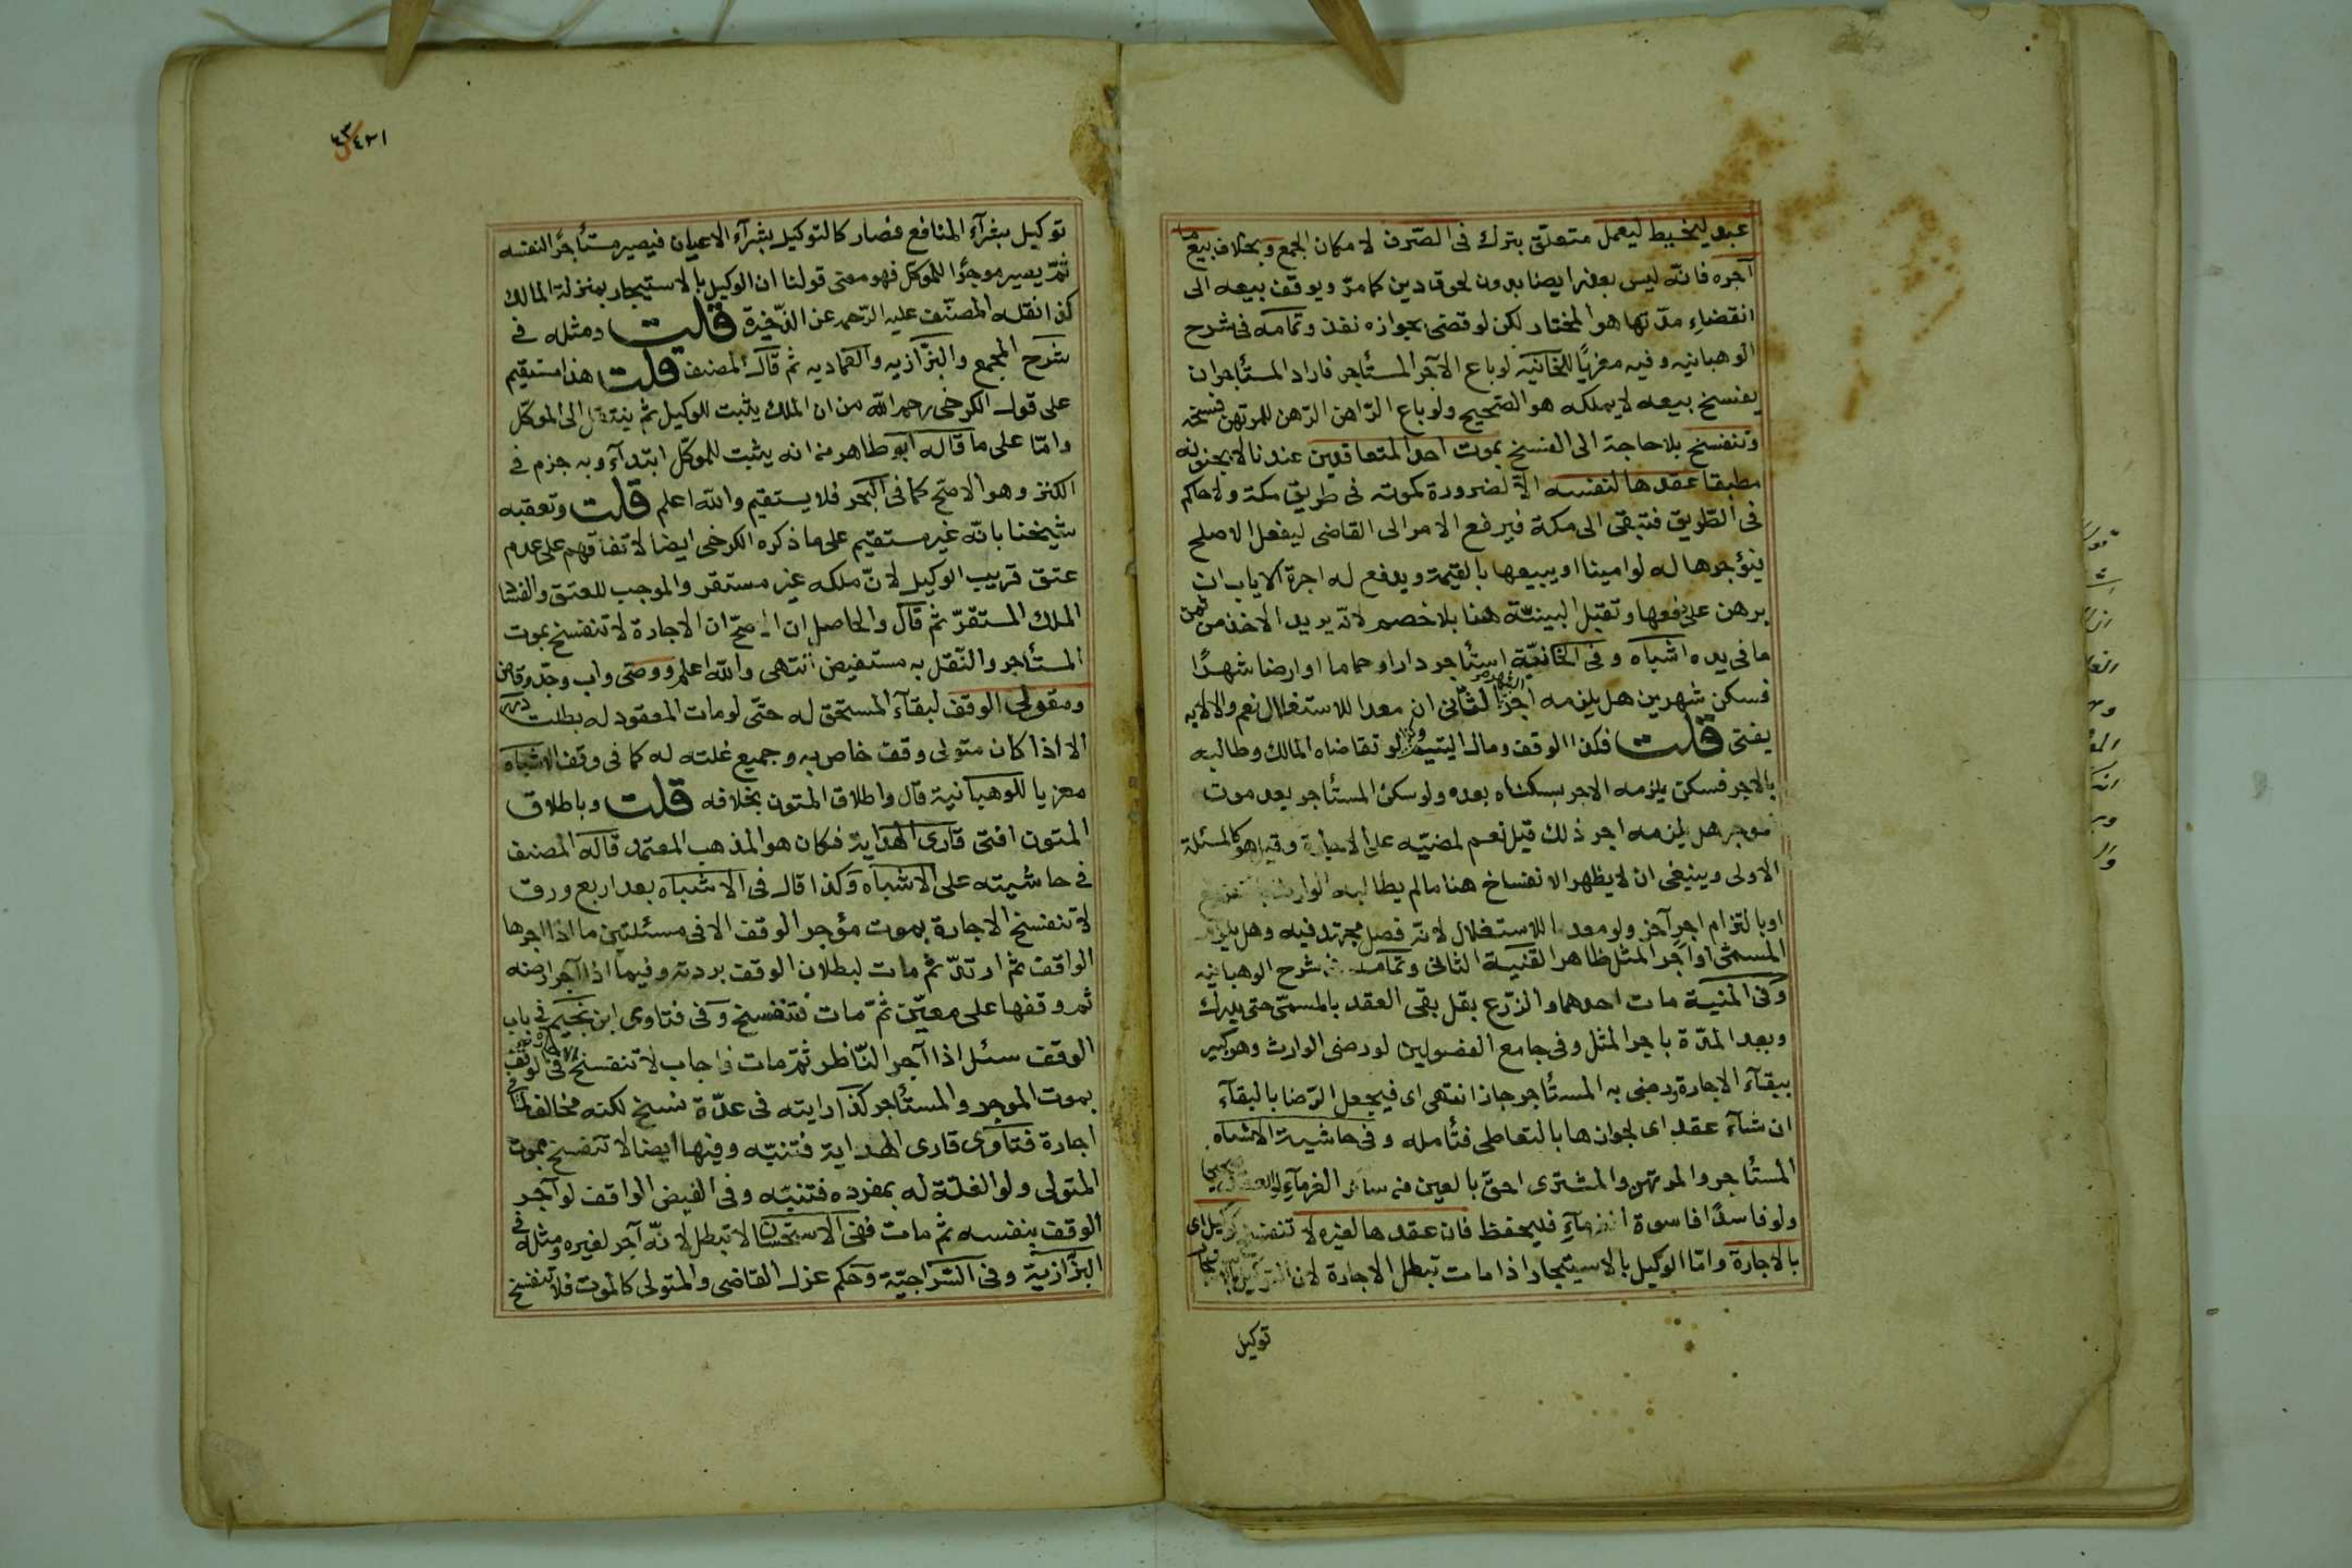 عبد ليخيط ليعمل متعلق بترك فى الصّرف لامكان الجمع وبخلاف بيع ما
آجره فانّه ليس بعذر ايضا بدون لحوق دين كما مرّ ويوقف بيعه الى
انقضاء مدّتها هو المختار لكن لو قضى بجوازه نفذ وتمامه فى شرح
الوهبانيه وفيه معزيًا للخانيه لو باع الآجر المستأجر فاراد المستأجر ان
يفسخ بيعه لا يملكه هو الصّحيح ولو باع الرّاهن الرّهن للمرتهن فسخه
وتنفسخ بلا حاجة الى الفسخ بموت احد المتعاقدين عندنا لا بجنونه
مطبقا عقدها لنفسه الّا لضرورة كموته فى طريق مكة ولا حاكم
فى الطّريق فتبقى الى مكة فيرفع الامر الى القاضى ليفعل الاصلح
فيؤجرها له لو امينا او يبيعها بالقيمة ويدفع له اجرة الاياب ان
برهن على دفعها وتقبل البينّة هنا بلا خصم لانّه يريد الاخذ من ثمن
ما فى يده اشباه وفى الخانيّة استأجر دارا او حماما او ارضا شهرًا
فسكن شهرين هل يلزمه اجر الشهر الثّانى ان معدا للاستغلال نعم والا لا به
يفتى قلت فكذا الوقف ومال اليتيم وكذا لو تقاضاه المالك وطالبه
بالاجر فسكن يلزمه الاجر بسكناه بعده ولو سكن المستأجر بعد موت
موجر هل يلزمه اجر ذلك قيل نعم لمضيّه على الاجارة وقيل هو كالمسئلة
الاولى وينبغى ان لا يظهر الانفساخ هنا ما لم يطالبه الوارث
او بالتزام اجر آخر ولو معدا للاستغلال لانّه فصل مجتهد فيه وهل يلزم
المسمّى او اجر المثل ظاهر القنية الثانى وتمامه فى شرح الوهبانيه
وفى المنية مات احدهما والزرّع بقل بقى العقد بالمسمّى حتى يدرك
وبعد المدّة باجر المثل وفى جامع الفصولين لو رضى الوارث وهو كبير
ببقآء الاجارة ورضى به المستأجر جاز انتهى اى فيجعل الرّضا بالبقآء
انشآء عقد اى لجوازها بالتعاطى فتأمله وفى حاشية الاشباه
المستأجر والمرتهن والمشترى احق بالعين من سائر الغرمآء لو العقد صحيحا
ولو فاسدًا فاسوة الغرمآء فليحفظ فان عقدها لغيره لا تنفسخ كوكيل اى
بالاجارة وامّا الوكيل بالاستيجار اذا مات تبطل الاجارة لان التوكيل بالاستيجار
توكيل
توكيل بشرآء المنافع فصار كالتوكيل بشرآء الاعيان فيصير مستأجرًا لنفسه
ثمّ يصير موجرًا للموكّل فهو معنى قولنا ان الوكيل بالاستيجار بمنزلة المالك
كذا نقله المصنّف عليه الرّحمه عن الذّخيرة قلت ومثله فى
شرح المجمع والبزّازيه والعماديه ثم قال المصنف قلت هذا مستقيم
على قول الكرخى رحمه الله من ان الملك يثبت للوكيل ثم ينتقل الى الموكّل
وامّا على ما قاله ابو طاهر من انه يثبت للموكّل ابتدآء وبه جزم فى
الكنز وهو الاصح كما فى البحر فلا يستقيم والله اعلم قلت وتعقبه
شيخنا بانّه غير مستقيم على ما ذكره الكرخى ايضا لاتفاقهم على عدم
عتق قريب الوكيل لانّ ملكه غير مستقر والموجب للعتق والفساد
الملك المستقرّ ثم قال والحاصل ان الاصحّ ان الاجارة لا تنفسخ بموت
المستأجر والنّقل به مستفيض انتهى والله اعلم ووصى واب وجدّ وقاض
ومتولى الوقف لبقآء المستحق له حتّى لو مات المعقود له بطلت درر
الا اذا كان متولى وقف خاص به وجميع غلته له كما فى وقف الاشباه
معزيا للوهبانية قال واطلاق المتون بخلافه قلت وباطلاق
المتون افتى قارى الهداية فكان هو المذهب المعتمد قاله المصنف
فى حاشيته على الاشباه وكذا قال فى الاشباه بعد اربع ورق
لا تنفسخ الاجارة بموت مؤجر الوقف الا فى مسئلتين ما اذا اجرها
الواقف ثم ارتدّ ثم مات لبطلان الوقف بردته وفيما اذا آجر ارضه
ثم وقفها على معيّن ثمّ مات فتنفسخ وفى فتاوى ابن نجيم فى باب
الوقف سئل اذا آجر النّاظر ثمّ مات فاجاب لا تنفسخ الاجارة فى الوقف
بموت الموجر والمستأجر كذا رايته فى عدّة نسخ لكنه مخالف لما فى
اجارة فتاوى قارى الهداية فتنبّه وفيها ايضا لا تنفسخ بموت
المتولى ولو الغلّة له بمفرده فتنبّه وفى الفيض الواقف لو آجر
الوقف بنفسه ثم مات ففى الاستحسان لا تبطل لانّه آجر لغيره ومثله فى
البزّازية وفى السّراجيّة وحكم عزل القاضى والمتولى كالموت فلا تنفسخ